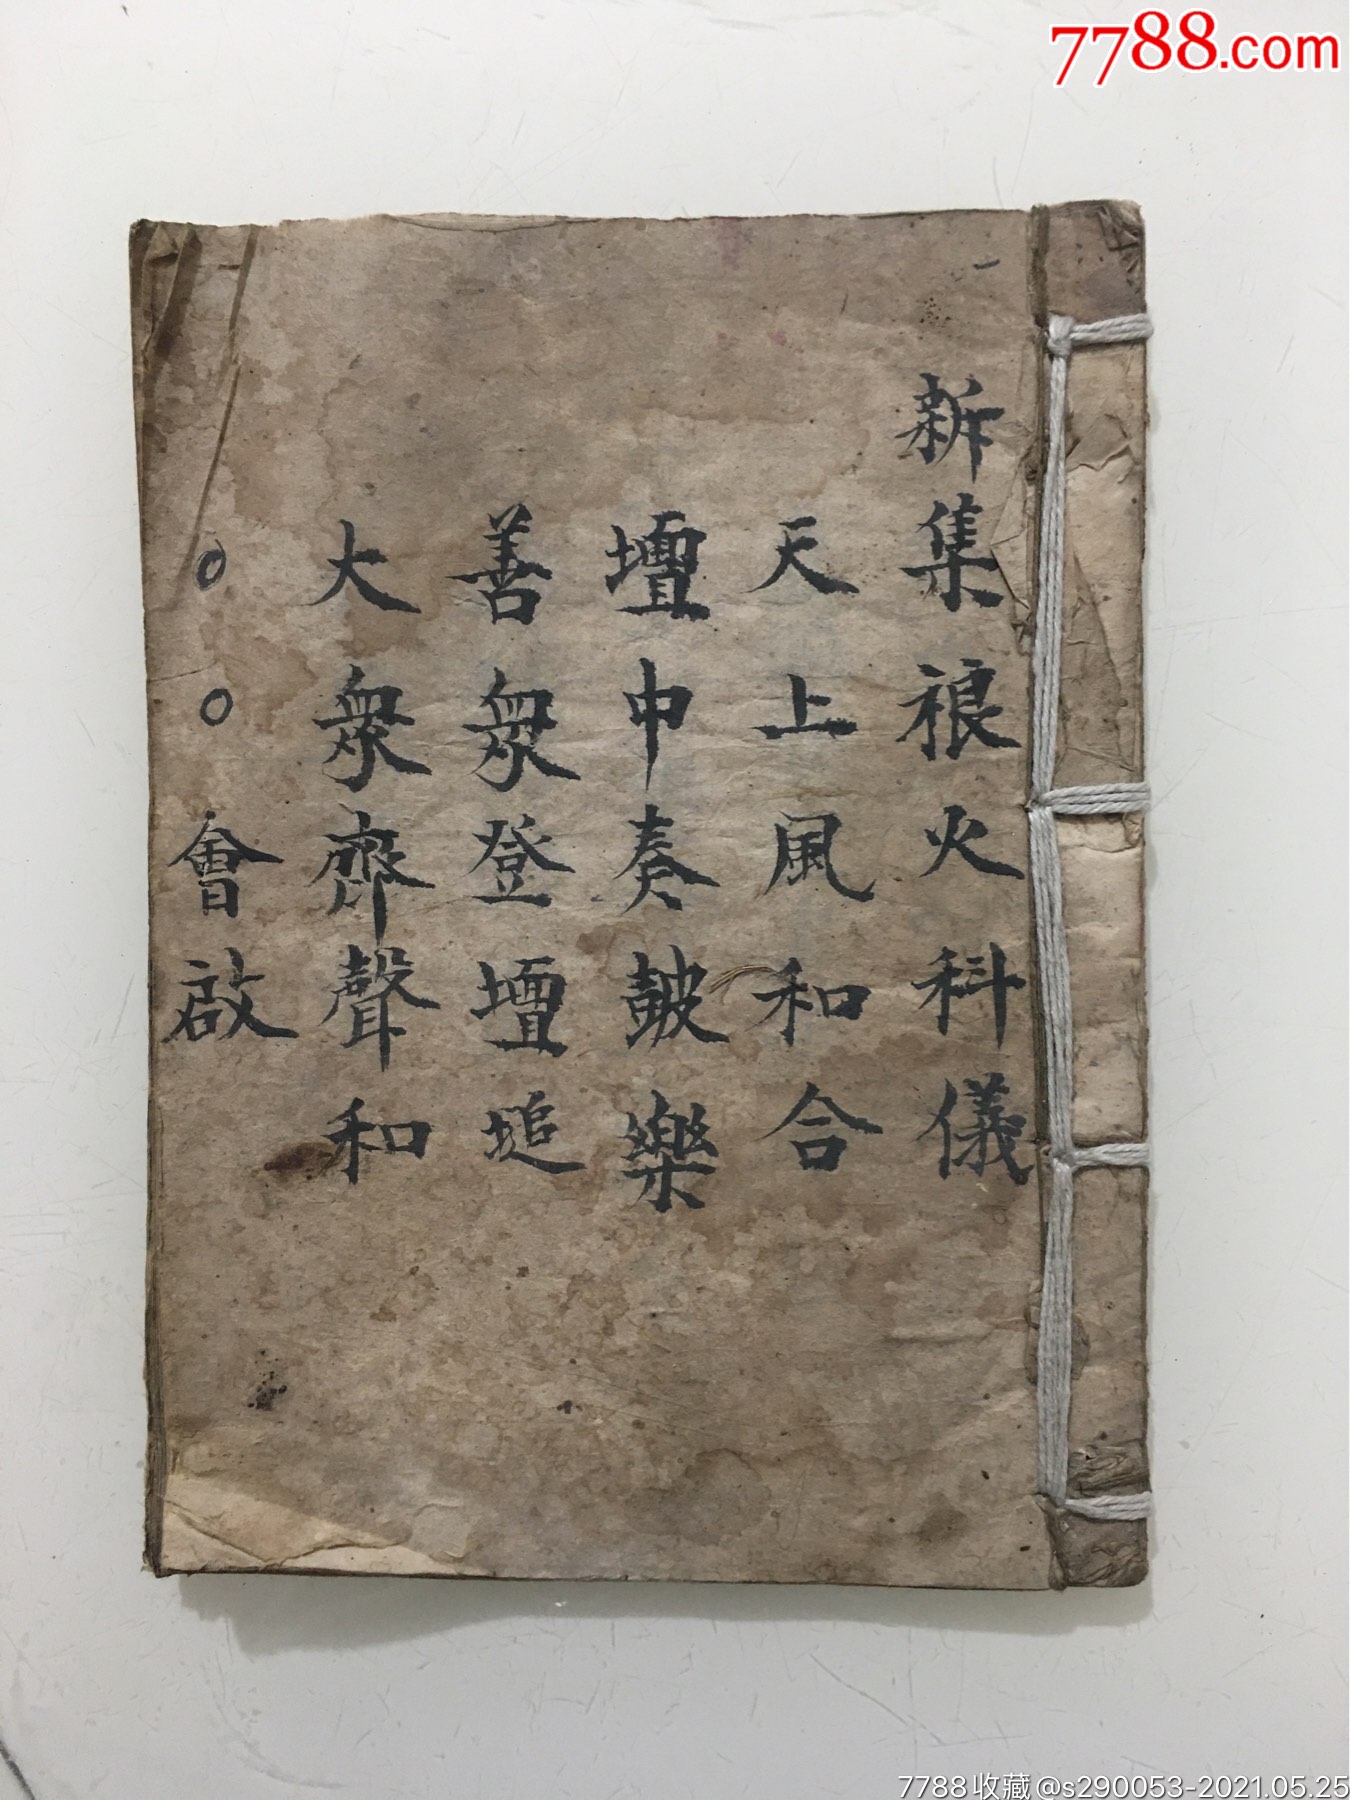 7788.com
新集䘙火科儀
天上風和合
壇中奏皷樂
善衆登壇塠
大衆齊聲和
〇〇會啟
7788收藏@s290053-2021.05.25